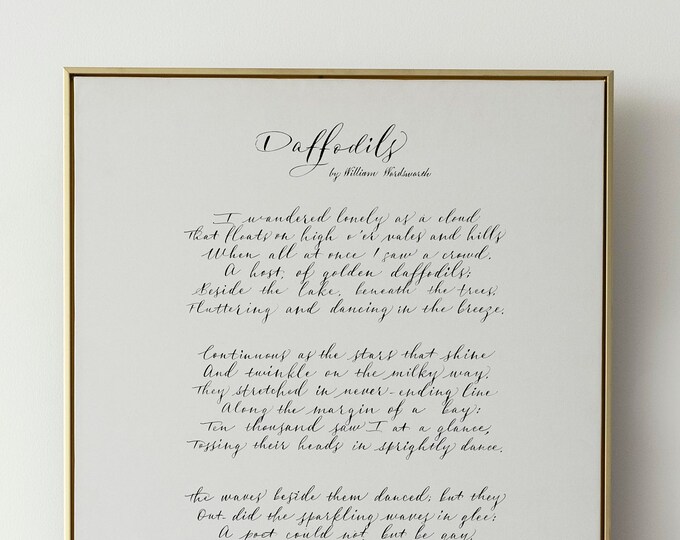 Daffodils
by William Wordsworth
I wandered lonely as a cloud
That floats on high o'er vales and hills
When all at once I saw a crowd,
A host, of golden daffodils;
Beside the lake, beneath the trees,
Fluttering and dancing in the breeze.
Continuous as the stars that shine
And twinkle on the milky way,
They stretched in never-ending line
Along the margin of a bay:
Ten thousand saw I at a glance,
Tossing their heads in sprightly dance.
The waves beside them danced; but they
Out-did the sparkling waves in glee:
A poet could not but be gay,